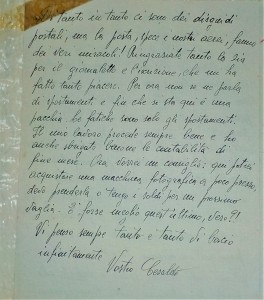 Di tanto in tanto ci sono dei disguidi
postali, ma la posta, specie nostra aerea, fanno
dei veri miracoli! Ringraziate tanto la zia
per il giornaletto e l'iscrizione, che mi ha
fatto tanto piacere. Per ora non se ne parla
di spostamenti e più che si sta qui è una
pacchia le fatiche sono solo gli spostamenti.
Il mio lavoro procede sempre bene e ho
anche sbrigato benone le contabilità di
fine mese. Ora vorrei un consiglio: qui potrei
acquistare una macchina fotografica a poco prezzo,
devo prenderla o tengo i soldi per un prossimo
vaglia. È forse meglio quest'ultimo, vero?!
Vi penso sempre tanto e tanto Vi bacio
infinitamente
Vostro Osvaldo